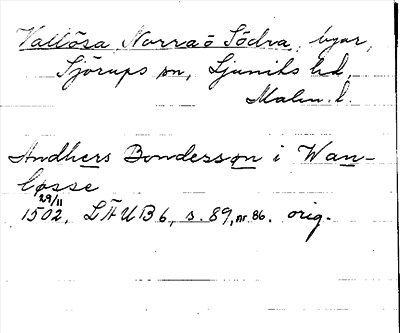 Vallösa, Norra o Södra, byar,
Sjörups sn, Ljunits hd,
Malm. l.
Andhers Bondesson i Wan-
løsse
29/11
1502, LÄUB 6, s. 89, nr 86. orig.